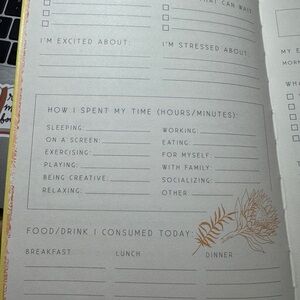 THAT CAN WAIT:
I'M EXCITED ABOUT:
I'M STRESSED ABOUT:
HOW I SPENT MY TIME (HOURS/MINUTES):
SLEEPING:
WORKING:
ON A SCREEN:
EATING:
EXERCISING:
FOR MYSELF:
PLAYING:
WITH FAMILY:
BEING CREATIVE:
SOCIALIZING:
RELAXING:
OTHER
FOOD/DRINK I CONSUMED TODAY:
BREAKFAST
LUNCH
DINNER
MY E
MOR